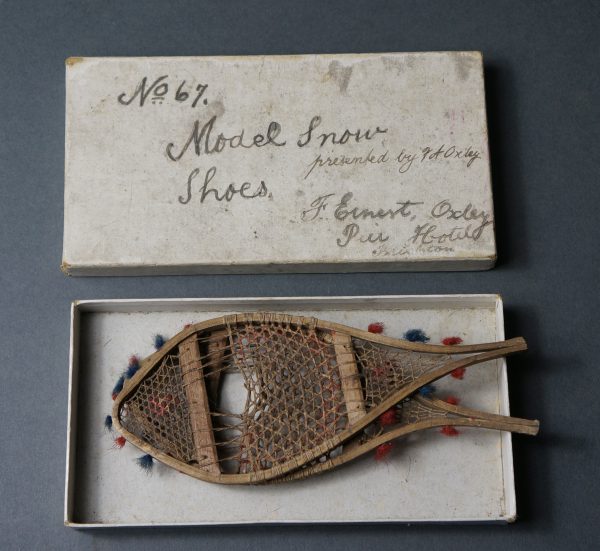 No 67.
Model Snow
presented by F A Oxley
Shoes.
F. Ernest, Oxley
Pier Hotel